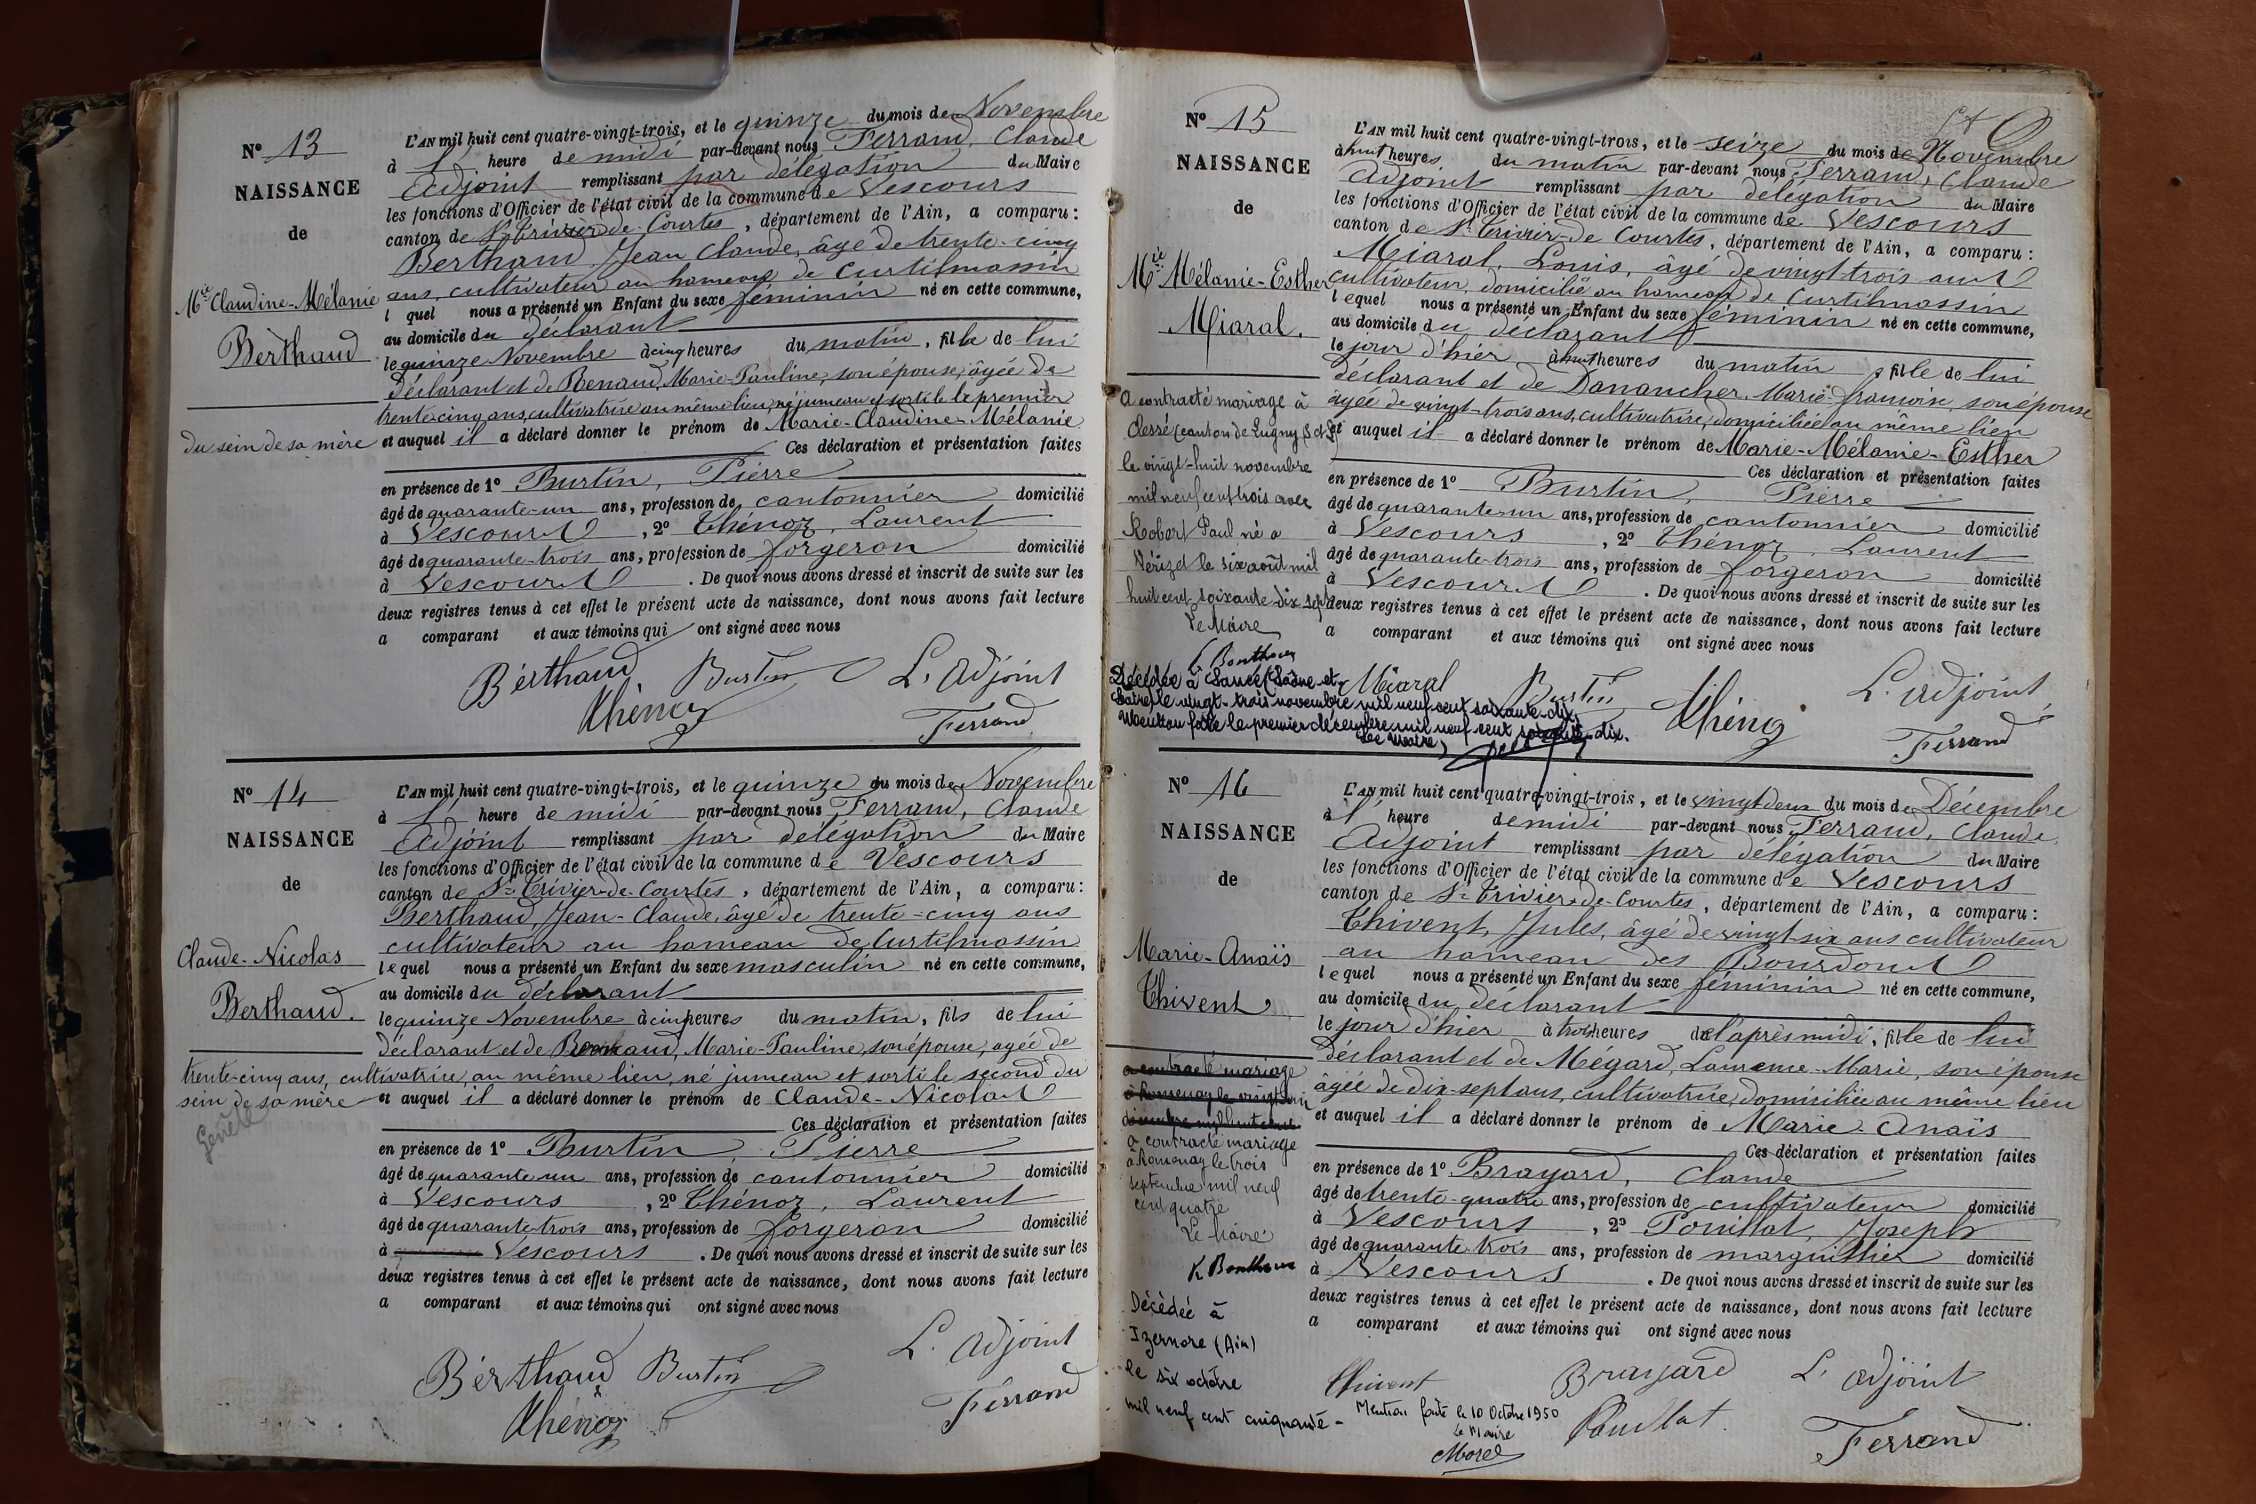 N° 13
NAISSANCE
de
Mie Claudine-Mélanie
Berthaud
L'AN mil huit cent quatre-vingt-trois, et le quinze du mois de Novembre
à 1 heure de midi par-devant nous Ferrand, Claude
Adjoint remplissant par délégation du Maire
les fonctions d'Officier de l'état civil de la commune de Vescours
canton de St Trivier-de-Courtes, département de l'Ain, a comparu :
Berthaud, Jean Claude, âgé de trente-cinq
ans, cultivateur au hameau de Curtilmassin
l quel nous a présenté un Enfant du sexe féminin né en cette commune,
au domicile du déclarant
le quinze Novembre à cinq heures du matin, fille de lui
déclarant et de Renaud, Marie-Pauline, son épouse, âgée de
trente-cinq ans, cultivatrice au même lieu, né jumeau et sortie la première
du sein de sa mère et auquel il a déclaré donner le prénom de Marie-Claudine-Mélanie
Ces déclaration et présentation faites
en présence de 1° Burtin, Pierre
âgé de quarante-un ans, profession de cantonnier domicilié
à Vescours, 2° Thénoz, Laurent
âgé de quarante-trois ans, profession de forgeron domicilié
à Vescours. De quoi nous avons dressé et inscrit de suite sur les
deux registres tenus à cet effet le présent acte de naissance, dont nous avons fait lecture
a comparant et aux témoins qui ont signé avec nous
Berthaud Burtin L'adjoint
Thénoz Ferrand
N° 14
NAISSANCE
de
Claude-Nicolas
Berthaud.
L'AN mil huit cent quatre-vingt-trois, et le quinze du mois de Novembre
à 1 heure de midi par-devant nous Ferrand, Claude
Adjoint remplissant par délégation du Maire
les fonctions d'Officier de l'état civil de la commune de Vescours
canton de St Trivier-de-Courtes, département de l'Ain, a comparu :
Berthaud, Jean-Claude, âgé de trente-cinq ans
cultivateur au hameau de Curtilmassin
lequel nous a présenté un Enfant du sexe masculin né en cette commune,
au domicile du déclarant
le quinze Novembre à cinq heures du matin, fils de lui
déclarant et de Renaud, Marie-Pauline, son épouse, agée de
trente-cinq ans, cultivatrice au même lieu, né jumeau et sorti le second du
sein de sa mère et auquel il a déclaré donner le prénom de Claude-Nicolas
Ces déclaration et présentation faites
en présence de 1° Burtin, Pierre
âgé de quarante-un ans, profession de cantonnier domicilié
à Vescours, 2° Thénoz, Laurent
âgé de quarante-trois ans, profession de forgeron domicilié
à Vescours. De quoi nous avons dressé et inscrit de suite sur les
deux registres tenus à cet effet le présent acte de naissance, dont nous avons fait lecture
a comparant et aux témoins qui ont signé avec nous
Berthaud Burtin L'adjoint
Thénoz Ferrand
N° 15
NAISSANCE
de
Mie Mélanie-Esther
Miaral.
L'AN mil huit cent quatre-vingt-trois, et le seize du mois de Novembre
à huit heures du matin par-devant nous Ferrand, Claude
Adjoint remplissant par délégation du Maire
les fonctions d'Officier de l'état civil de la commune de Vescours
canton de St Trivier-de-Courtes, département de l'Ain, a comparu :
Miaral, Louis, âgé de vingt-trois ans
cultivateur, domicilié au hameau de Curtilmassin
lequel nous a présenté un Enfant du sexe féminin né en cette commune,
au domicile du déclarant
le jour d'hier à huit heures du matin, fille de lui
déclarant et de Danancher, Marie-françoise, son épouse
âgée de vingt-trois ans, cultivatrice, domiciliée au même lieu
et auquel il a déclaré donner le prénom de Marie-Mélanie-Esther
Ces déclaration et présentation faites
en présence de 1° Burtin, Pierre
âgé de quarante-un ans, profession de cantonnier domicilié
à Vescours, 2° Thénoz, Laurent
âgé de quarante-trois ans, profession de forgeron domicilié
à Vescours. De quoi nous avons dressé et inscrit de suite sur les
deux registres tenus à cet effet le présent acte de naissance, dont nous avons fait lecture
a comparant et aux témoins qui ont signé avec nous
Miaral Burtin L'adjoint,
Thénoz Ferrand
a contracté mariage à
Clessé (canton de Lugny S et L)
le vingt-huit novembre
mil neuf cent trois avec
Robert Paul né à
Vérizet le six août mil
huit cent soixante dix sept
Le Maire
Décédée à Sancé (Saône-et-
Loire) le vingt-trois novembre mil neuf cent soixante-dix.
Mention faite le premier décembre mil neuf cent soixante-dix.
Le Maire,
N° 16
NAISSANCE
de
Marie-Anaïs
Thivent
L'AN mil huit cent quatre-vingt-trois, et le vingt deux du mois de Décembre
à 1 heure de midi par-devant nous Ferrand, Claude
Adjoint remplissant par délégation du Maire
les fonctions d'Officier de l'état civil de la commune de Vescours
canton de St Trivier-de-Courtes, département de l'Ain, a comparu :
Thivent, Jules, âgé de vingt-six ans cultivateur
au hameau des Bourdons
lequel nous a présenté un Enfant du sexe féminin né en cette commune,
au domicile du déclarant
le jour d'hier à trois heures de l'après midi, fille de lui
déclarant et de Mégard, Laurence-Marie, son épouse
âgée de dix-sept ans, cultivatrice, domiciliée au même lieu
et auquel il a déclaré donner le prénom de Marie-Anaïs
Ces déclaration et présentation faites
en présence de 1° Brayard, Claude
âgé de trente-quatre ans, profession de cultivateur domicilié
à Vescours, 2° Pouillat, Joseph
âgé de quarante-trois ans, profession de marguillier domicilié
à Vescours. De quoi nous avons dressé et inscrit de suite sur les
deux registres tenus à cet effet le présent acte de naissance, dont nous avons fait lecture
a comparant et aux témoins qui ont signé avec nous
Thivent Brayard L'adjoint
Pouillat Ferrand
a contracté mariage
à Romenay le trois
septembre mil neuf
cent quatre
Le Maire
Décédée à
Izernore (Ain)
le six octobre
mil neuf cent cinquante-
Mention faite le 10 Octobre 1950
Le Maire
Morel